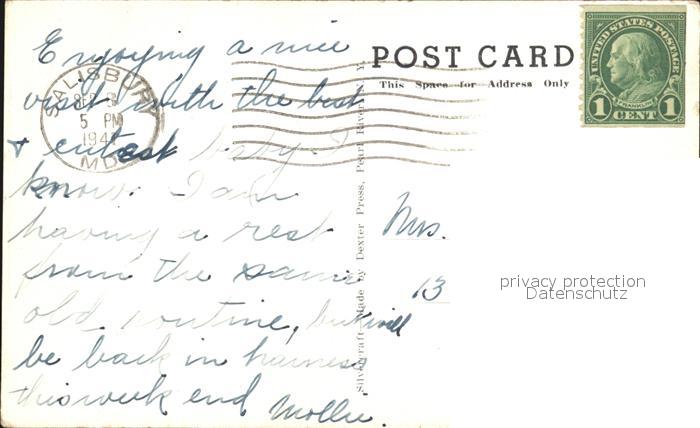 Enjoying a nice
visit with the best
+ cutest baby I
know. I am
having a rest
from the same
old routine, but will
be back in harness
this week end Mollie.
SALISBURY
5 PM
MD.
POST CARD
This Space for Address Only
Silvercraft Made by Dexter Press, Pearl River, N. Y.
UNITED STATES POSTAGE
FRANKLIN
1 CENT 1
Mrs.
13
privacy protection
Datenschutz